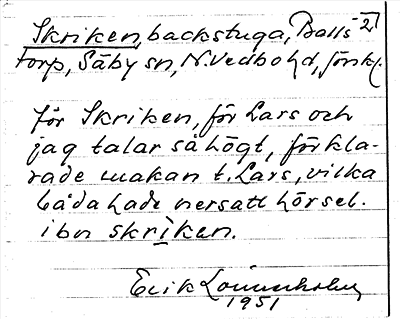 Skriken, backstuga, Balls- 2
torp, Säby sn, N. Vedbo hd, Jönk.
för Skriken, för Lars och
jag talar så högt, förkla-
rade makan t. Lars, vilka
båda hade nersatt hörsel.
ibn skrìken.
Erik Lönnerholm
1951